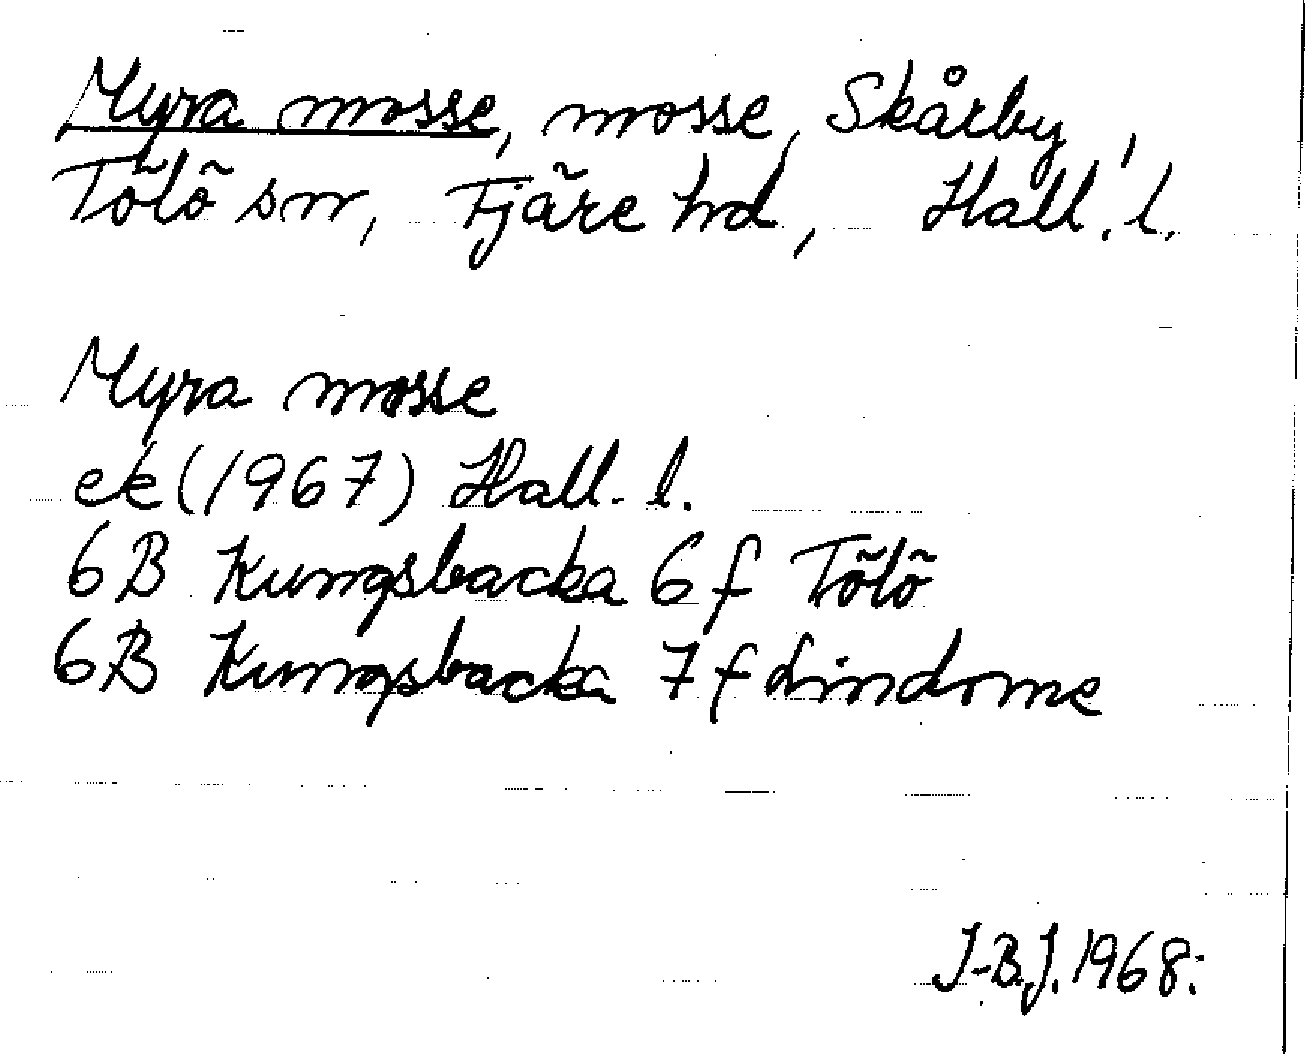 Myra mosse, mosse, Skårby,
Tölö sn, Fjäre hd, Hall. l.
Myra mosse
ek (1967) Hall. l.
6B Kungsbacka 6f Tölö
6B Kungsbacka 7f Lindome
J-B.J. 1968.